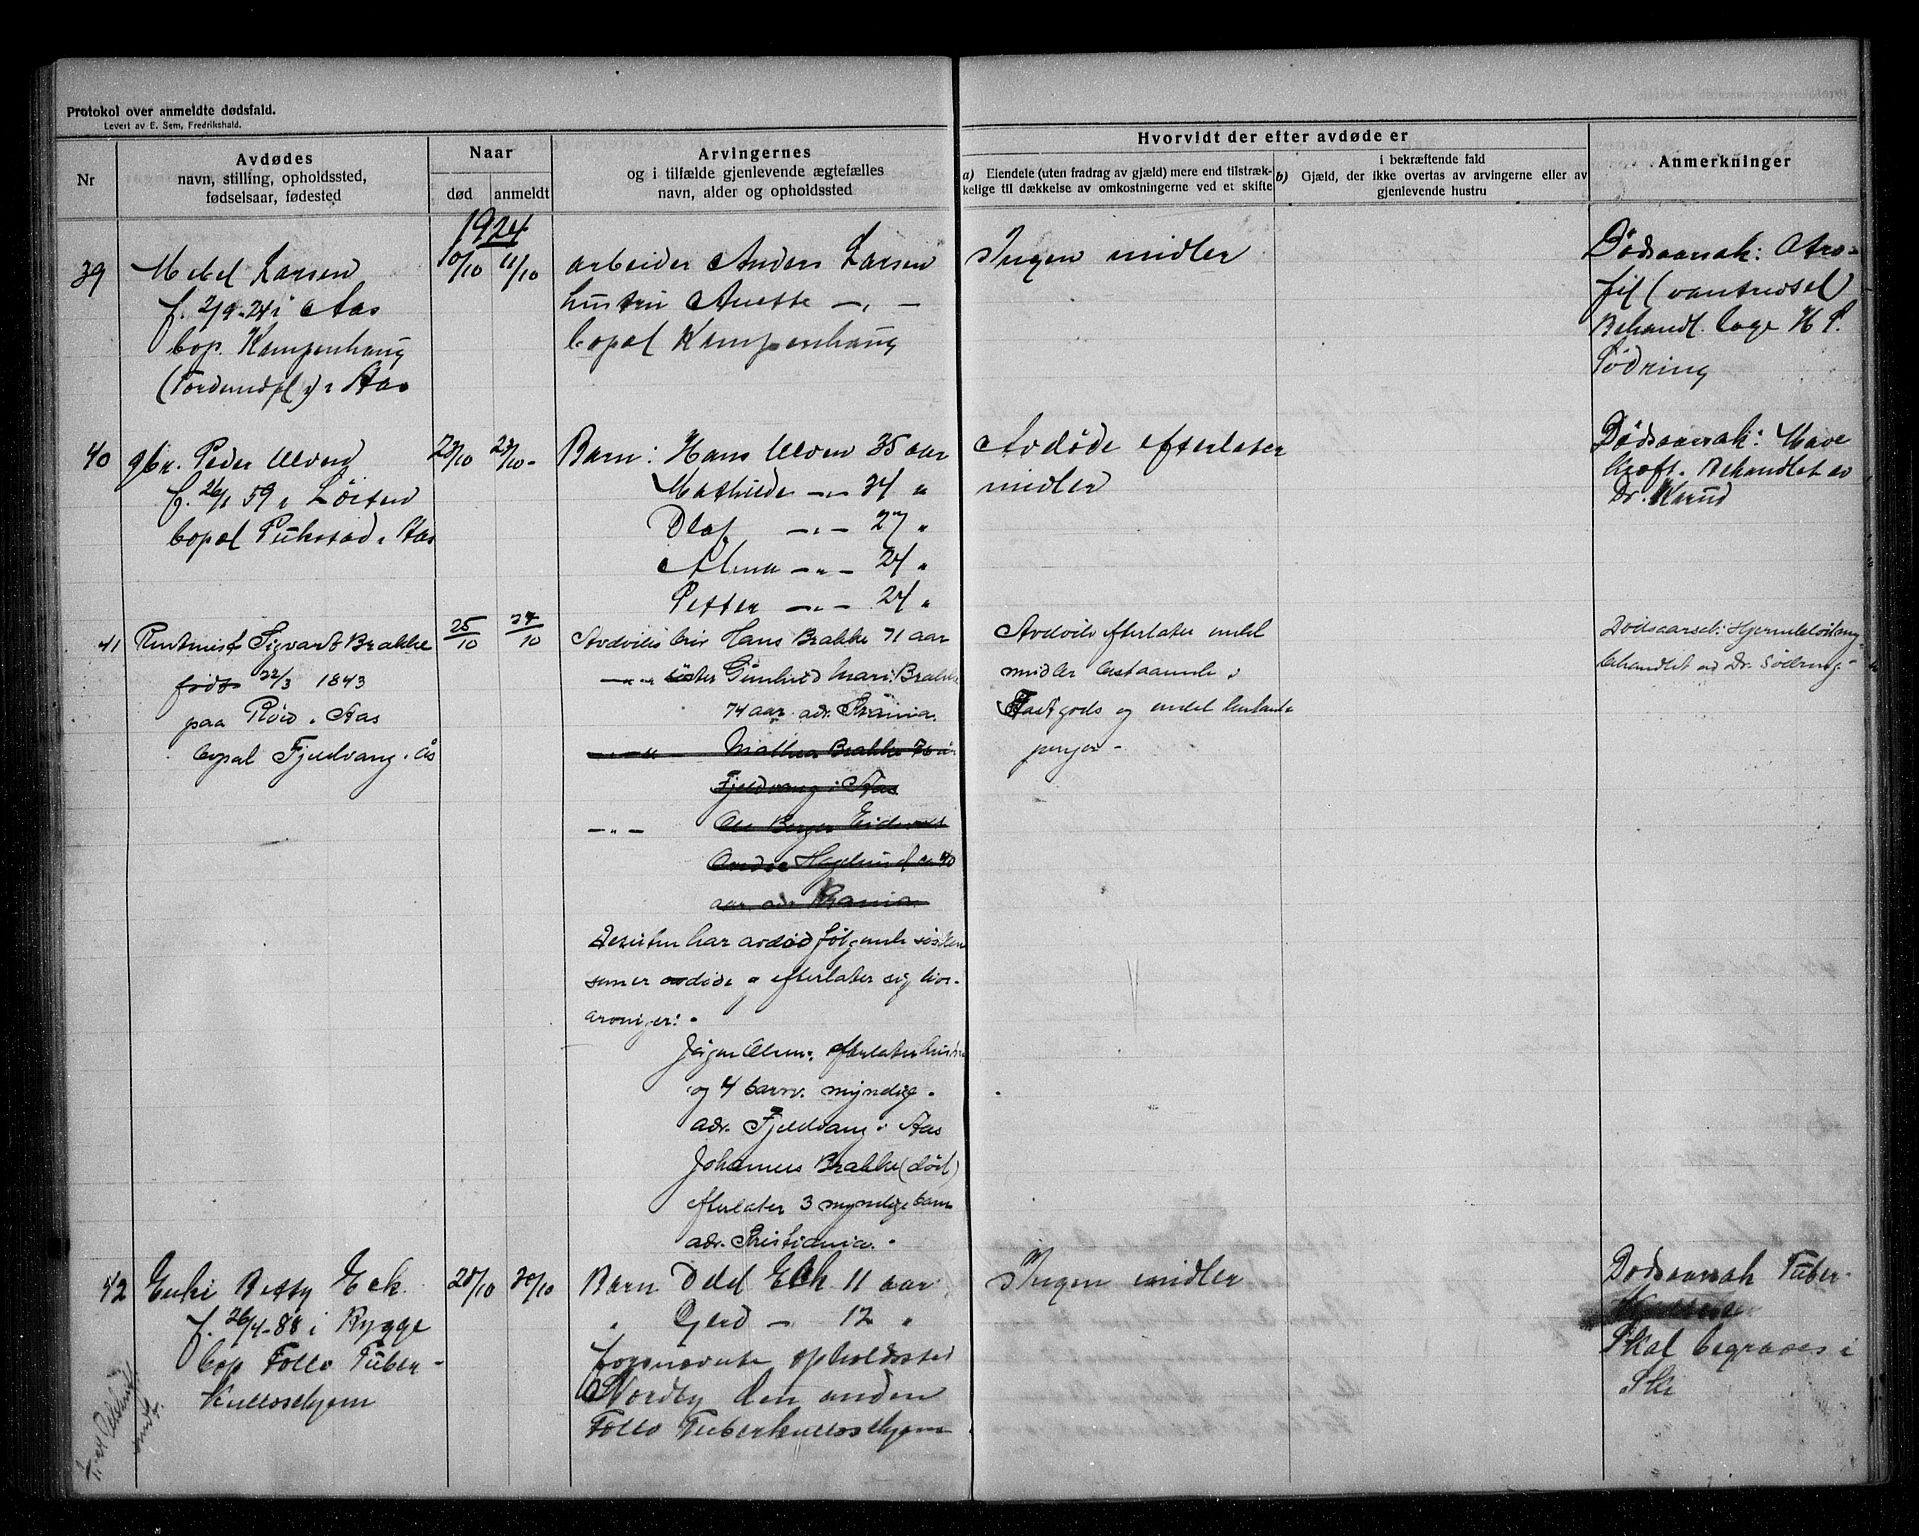 Protokol over anmeldte dødsfald.
Levert av E. Sem, Fredrikshald.
Nr
Avdødes
navn, stilling, opholdssted,
fødselsaar, fødested
Naar
død
anmeldt
Arvingernes
og i tilfælde gjenlevende ægtefælles
navn, alder og opholdssted
Hvorvidt der efter avdøde er
a) Eiendele (uten fradrag av gjæld) mere end tilstræk-
kelige til dækkelse av omkostningerne ved et skifte
i bekræftende fald
b) Gjæld, der ikke overtas av arvingerne eller av
gjenlevende hustru
Anmerkninger
1924
39
Larsen
f. 2/9-24 i Aas
bop. Kampenhaug
i Aas
10/10
11/10
arbeider Anders Larsen
hustru Anette -„-
bopæl Kampenhaug
Ingen midler
Dødsaarsak: Atro-
fil (vantrivsel)
Behandl. læge H P.
Södring
40
gbr. Peder Ulven
f. 26/1 59 i Löiten
bopæl i Aas
23/10
23/10 -
Barn: Hans Ulven 35 aar
Mathilde -„- 34 „
Olaf -„- 27 „
Alma -„- 24 „
Petter -„- 24 „
Avdøde efterlater
midler
Dødsaarsak: Mave
kræft. Behandlet av
Dr.
41
Rentenist Sigvart Brække
født 22/3 1843
paa Röd i Aas
bopæl Fjeldvang i Ås
25/10
27/10
Avdödes bror Hans Brække 71 aar
-„- söster Gunhild Mari Brække
74 aar adr. Kr.ania.
-„- Mathea Brække
Fjeldvang i Aas
-„- Ole Berger Eidsvold
aar adr Kr.ania.
Desuten har avdöd følgende søsken
som er avdöde og efterlater sig livs-
arvinger:
Jörgen Olsen, efterlater hustru
og 4 barn myndig.
adr. Fjeldvang i Aas
Johannes Brække (död)
efterlater 3 myndige barn
adr. Kristiania.
Avdöde efterlater endel
midler bestaaende i
Fastgods og endel kontante
penger -
Dödsaarsak: Hjernebl
behandlet av Dr. Södring -
42
Enke Betty Eek
f. 26/4-88 i Rygge
bop Follo Tuber-
kullosehjem
28/10
30/10
Barn Odd Eek 11 aar
„ Gerd - 12 „
förstnævnte opholdssted
Nordby den anden
Follo Tuberkullosehjem
Ingen midler
Dødsaarsak Tuber-
Skal begraves i
Ski